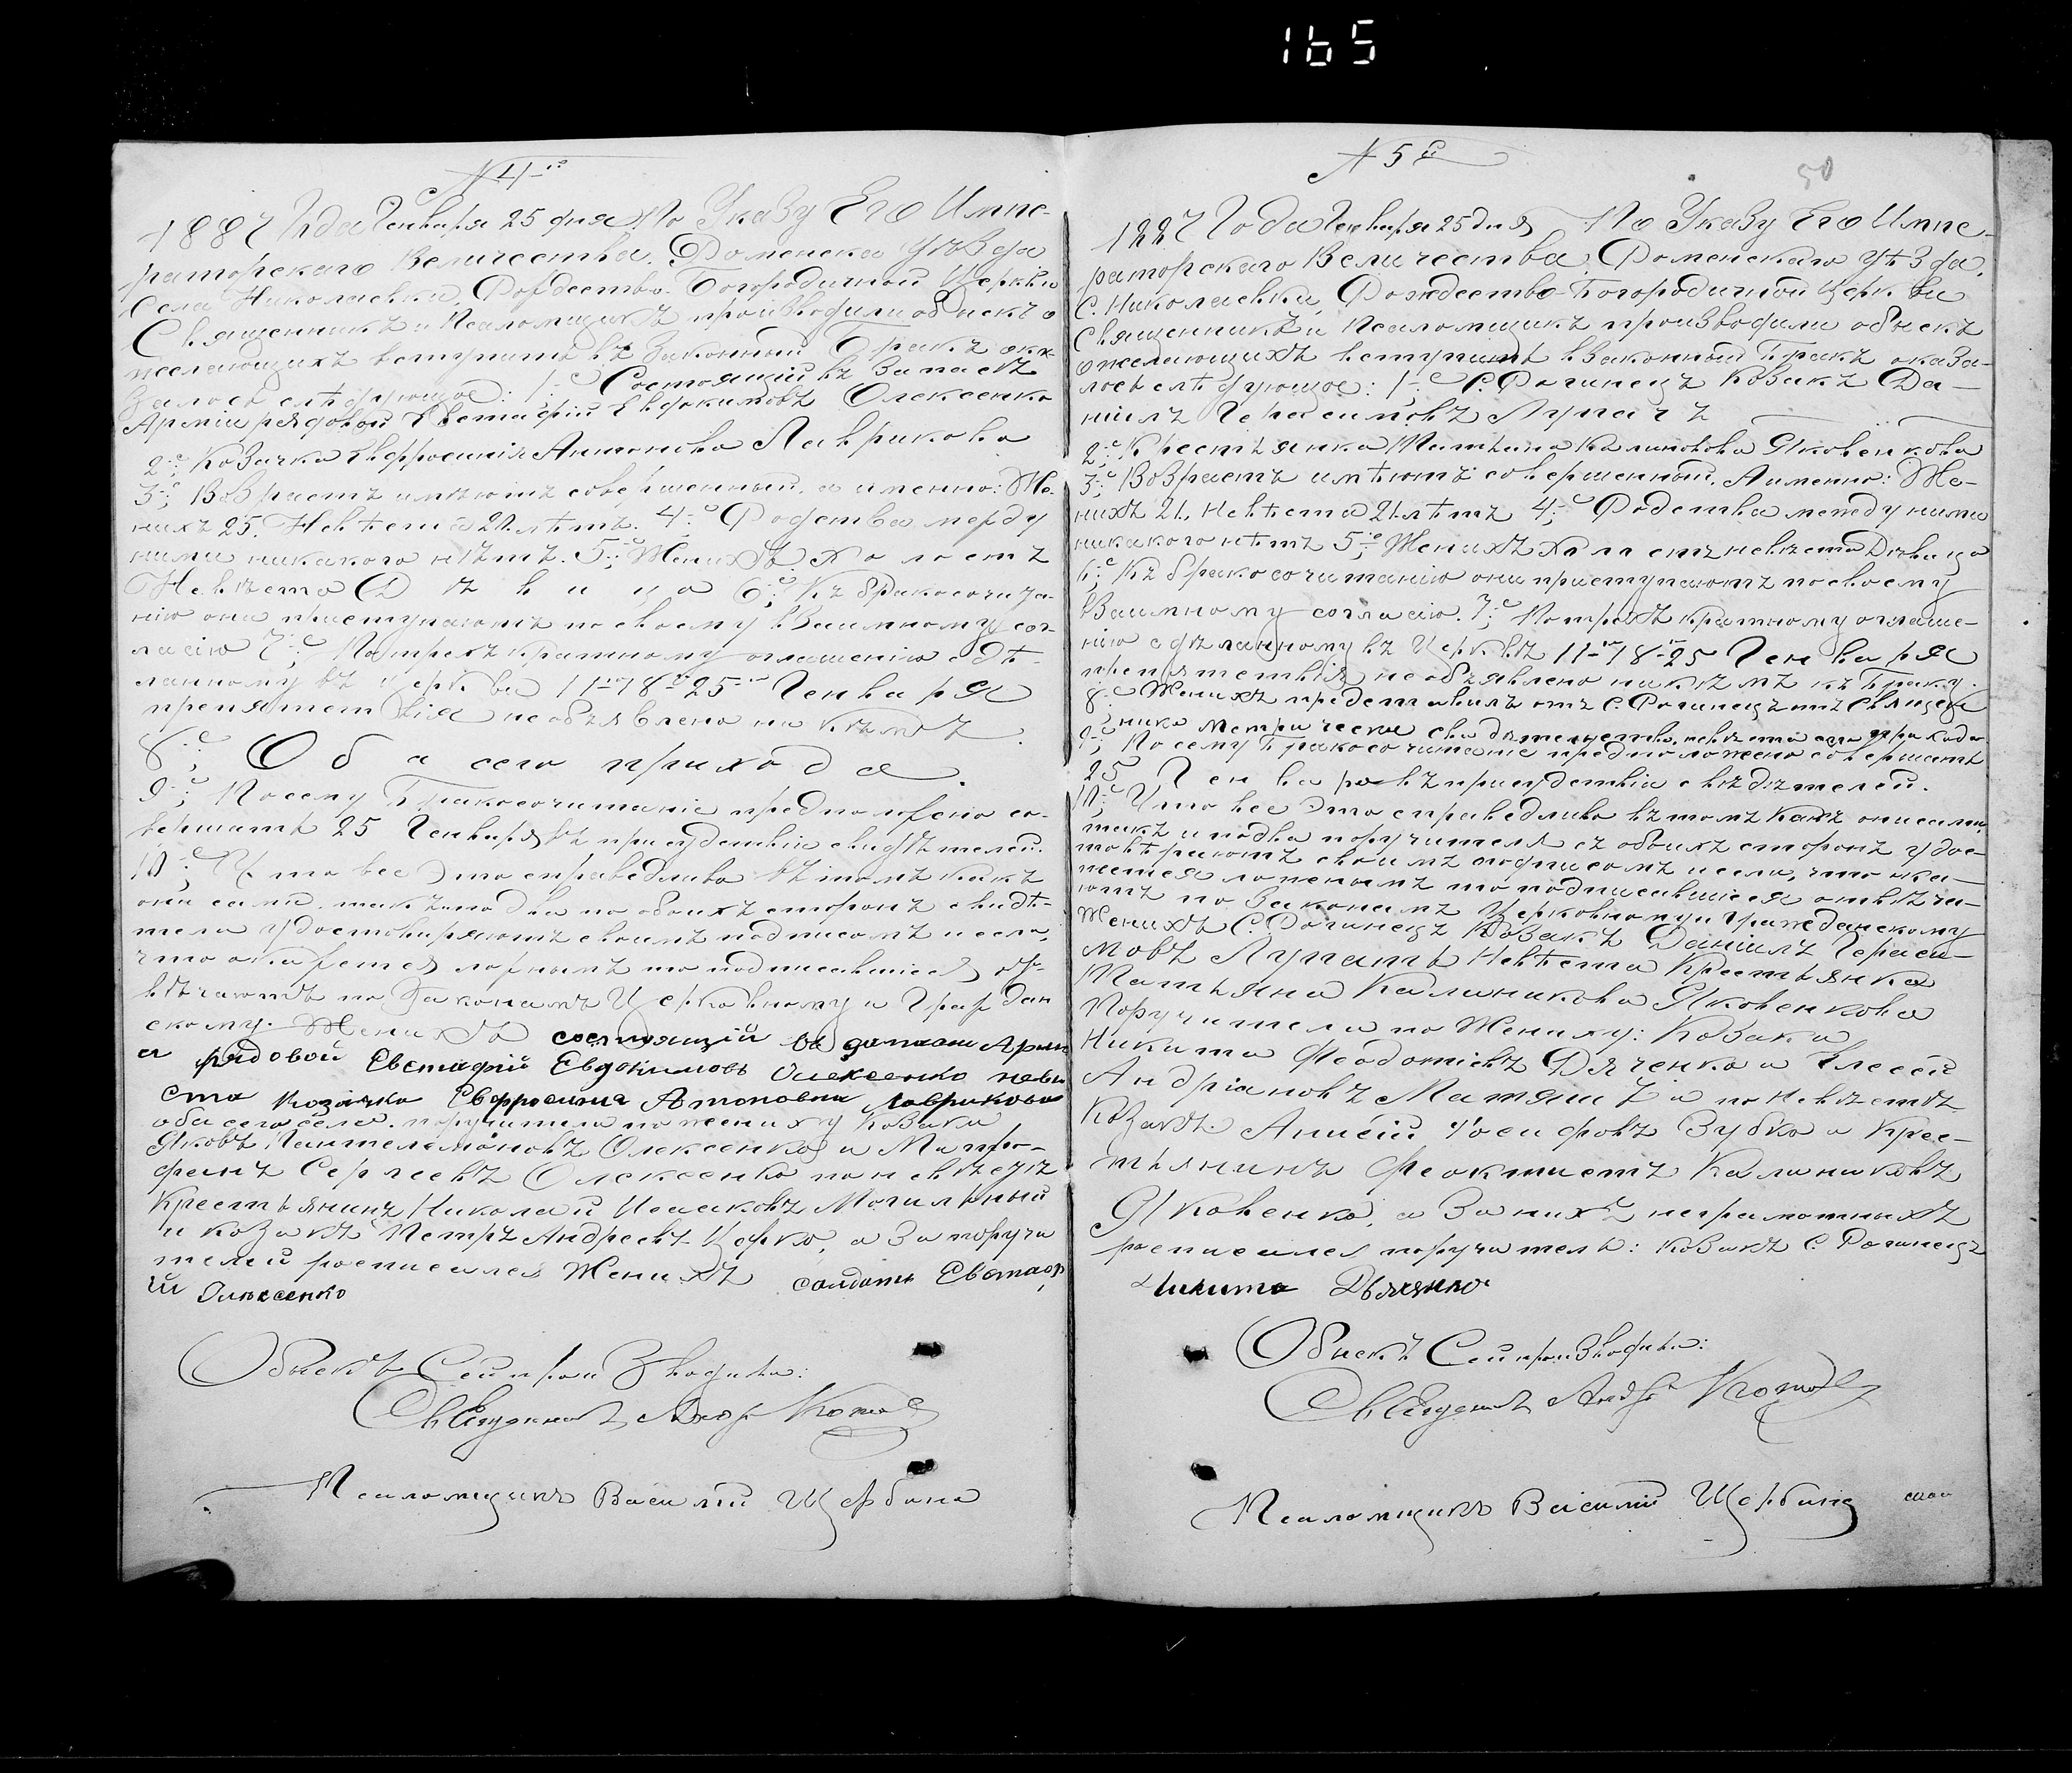 165
№ 4-й
1887 Года Генваря 25 дня По Указу Его Импе-
раторскаго Величества. Роменска Уѣзда
Села Николаевки, Рождество-Богородичной Церкви
Священникъ и Псаломщикъ производили обыскъ о
желающихъ вступить въ Законный Бракъ ока-
залось слѣдующое: 1-е Состоящій въ Запасѣ
Арміи рядовой Евстафій Евдокимовъ Олексенко
2-е; Козачка Евфросинія Антонова Лаврикова
3-е; Возрастъ имѣютъ совершенный, а именно: Же-
нихъ 25. Невѣста 21. лѣтъ. 4-е Родства между
ними никакого нѣтъ. 5-е; Женихъ холостъ
Невѣста Дѣвица 6-е; Къ бракосочита-
нію они приступаютъ по своему Взаимному сог-
ласію 7-е; По трехъ кратному оглашенію сдѣ-
ланному въ церкви 11-го 18-го 25-го Генваря
препятствія необъявлено ни кѣмъ.
8-е; Оба сего прихода.
9-е; Посему Бракосочитаніе предположено со-
вершить 25 Генваря въ присудствіи свидѣтелей.
10-е; Что все Это справедливо въ томъ какъ
они сами такъ и по два по обоихъ сторонъ свидѣ-
тела удостовиряютъ своимъ подписомъ и если,
что окажется ложнымъ то подписавшіеся от-
вѣчаютъ по Законамъ Церковному и Граждан
скому. Женихъ состоящій въ запаси Арми
и рядовой Евстафій Евдокимовъ Олексенко невѣ
ста козачка Евфросиния Антоновна Лаврикова
оба сего села. поручители по жениху Козаки
Яковъ Пантелемоновъ Олексенко и Митро-
фанъ Сергеевъ Олексенко по невѣсдѣ
Крестьянинъ Николай Исааковъ Могильный
и козакъ Петръ Андреевъ Церко, а За поручи
телей росписался Женихъ солдатъ Евстаф
ій Олексенко
Обыскъ Сей производили:
Священникъ Андр.
Псаломщикъ Василій Щербина
№ 5-й
50
1887 Года Генваря 25 дня По Указу Его Импе-
раторскаго Величества, Роменскаго Уѣзда,
С. Николаевки, Рождество-Богородичной Церкви
Священникъ и Псаломщикъ производили обыскъ
о желающихъ вступить въ законный Бракъ оказа-
лось слѣдующое: 1-е С. Рогинецъ Козакъ Да-
ніилъ Герасимовъ
2-е; Крестьянка Татьяна Калиникова Яковенкова
3-е; Возрастъ имѣютъ совершенный. А именно: Же-
нихъ 21. Невѣста 21. лѣтъ 4-е; Родства между ними
никакого нѣтъ 5-е Женихъ Холостъ невѣста Дѣвица
6-е; Къ бракосочитанію они приступаютъ по своему
Взаимному согласію. 7-е; По трехъ кратному оглаше-
нію сдѣланному въ Церквѣ 11-го 18-25 Генваря
препятствія необъявлено никѣмъ къ браку.
8-е Женихъ представилъ отъ С. Рогинецъ отъ Священ
ника метрическое свидѣтельство, невѣста сего прихода
9-е; Посему Бракосочитаніе предположено совершить
25 Генваря въ присудствіи свидѣтелей.
10-е; Что все Это справедливо въ томъ какъ они сами,
такъ и по два поручителя съ обоихъ сторонъ удос-
товѣряютъ своимъ подписомъ и если, что ока-
жется ложнымъ то подписавшіеся отвѣча-
ютъ по Законамъ Церковному и Гражданскому
Женихъ С. Рогинецъ Козакъ Даніилъ Гераси-
мовъ Невѣста Крестьянка
Татьяна Калиникова Яковенкова
Поручители по Жениху: Козаки
Никита Феодотіевъ Дяченко и Елесей
Андріановъ Матяшъ и по Невѣстѣ
Козакъ. Аписій Іосифовъ Зубко и Крес-
тьянинъ Феоктистъ Калиниковъ
Яковенко, а За нихъ неграмотныхъ
росписался поручитель: Козакъ С. Рогинецъ
Никита Дяченко
Обыскъ Сей производили:
Священникъ Андр.
Псаломщикъ Василій Щербина